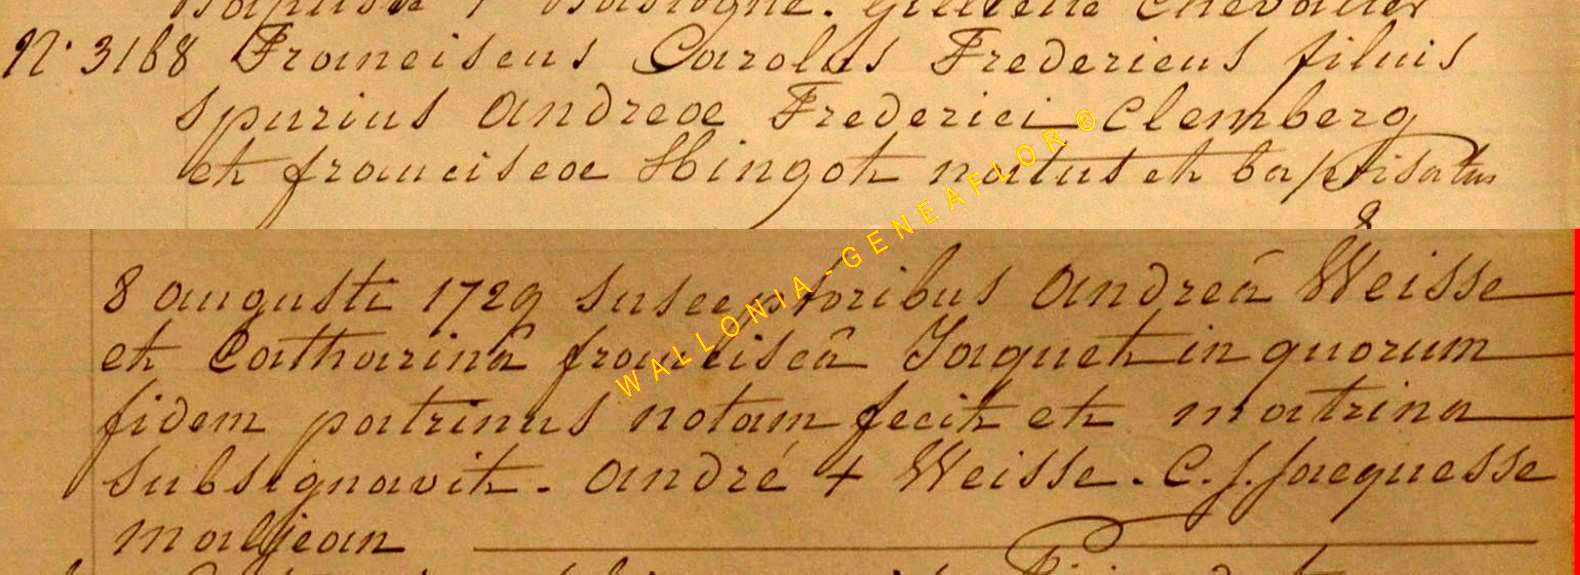 Baptiste + Bastogne. Guillelle Chevalier
N° 3168 Franciscus Carolus Fredericus filius
spurius Andreæ Frederici Clemberg
et franciscæ Hingot natus et baptisatus
8
8 augusti 1729 susceptoribus Andreâ Weisse
et Catharinâ franciscâ Jaquet in quorum
fidem patrinus notam fecit et matrina
subsignavit. André + Weisse. C. f. jacquesse
maljean
WALLONIA-GENEAFLOR®